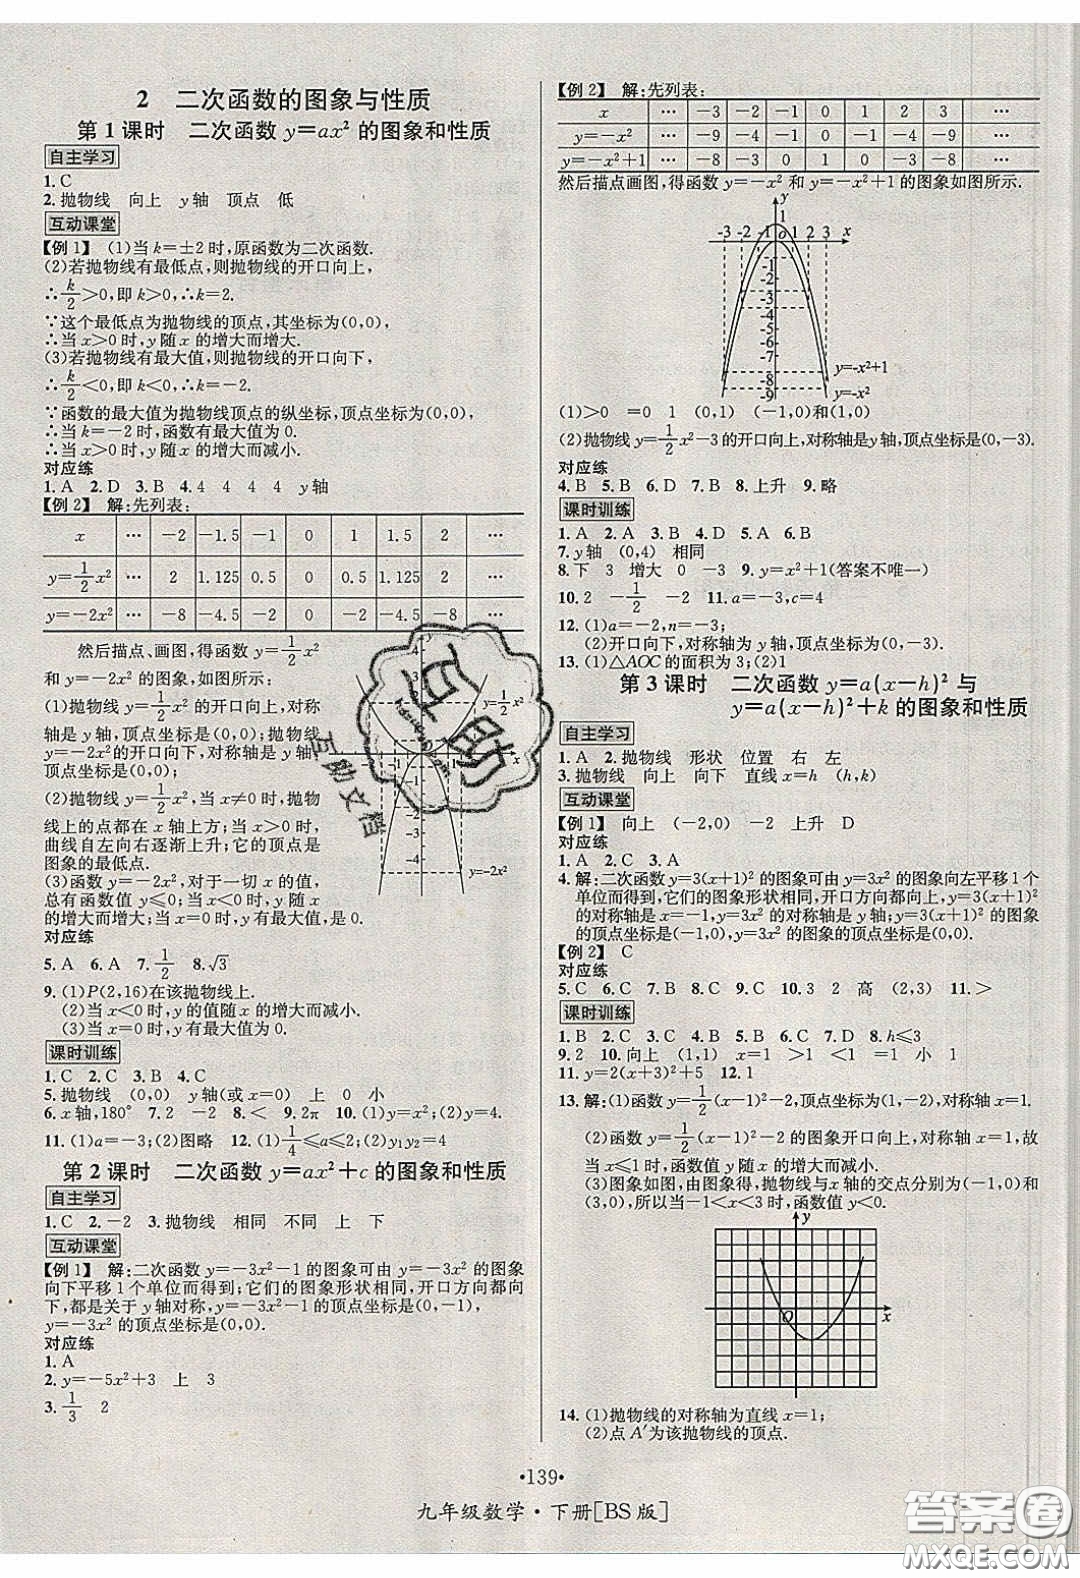 2 二次函数的图象与性质
第1课时 二次函数 y=ax² 的图象和性质
自主学习
1.C
2.抛物线 向上 y轴 顶点 低
互动课堂
【例1】 (1)当k=±2时,原函数为二次函数.
(2)若抛物线有最低点,则抛物线的开口向上,
∴k/2>0,即k>0,∴k=2.
∵这个最低点为抛物线的顶点,其坐标为(0,0),
∴当x>0时,y随x的增大而增大.
(3)若抛物线有最大值,则抛物线的开口向下,
∴k/2<0,即k<0,∴k=-2.
∵函数的最大值为抛物线顶点的纵坐标,顶点坐标为(0,0),
∴当k=-2时,函数有最大值为0.
∴当x>0时,y随x的增大而减小.
对应练
1.A 2.D 3.B 4.4 4 4 4 y轴
【例2】 解:先列表:
x … -2 -1.5 -1 0 1 1.5 2 …
y=1/2x² … 2 1.125 0.5 0 0.5 1.125 2 …
y=-2x² … -8 -4.5 -2 0 -2 -4.5 -8 …
然后描点、画图,得函数y=1/2x²
和y=-2x²的图象,如图所示:
(1)抛物线y=1/2x²的开口向上,对称
轴是y轴,顶点坐标是(0,0);抛物线
y=-2x²的开口向下,对称轴是y轴,
顶点坐标是(0,0).
(2)抛物线y=1/2x²,当x≠0时,抛物
线上的点都在x轴上方;当x>0时,
曲线自左向右逐渐上升;它的顶点是
图象的最低点.
(3)函数y=-2x²,对于一切x的值,
总有函数值y≤0;当x<0时,y随x
的增大而增大;当x=0时,y有最大值,是0.
y=1/2x²
y=-2x²
x
对应练
5.A 6.A 7.1/2 8.√3
9.(1)P(2,16)在该抛物线上.
(2)当x<0时,y的值随x的增大而减小.
(3)当x=0时,y有最大值为0.
课时训练
1.C 2.C 3.B 4.C
5.抛物线 (0,0) y轴(或x=0) 上 0 小
6.x轴,180° 7.2 -2 8.< 9.2π 10.(1)y=2;(2)y=4.
11.(1)a=-3;(2)图略 12.(1)1/4≤a≤2;(2)y₁y₂=4
第2课时 二次函数 y=ax²+c 的图象和性质
自主学习
1.C 2.-2 3.抛物线 相同 不同 上 下
互动课堂
【例1】 解:二次函数y=-3x²-1的图象可由y=-3x²的图象
向下平移1个单位而得到;它们的图象形状相同,开口方向都向
下,都是关于y轴对称,y=-3x²-1的顶点坐标是(0,-1),
y=-3x²的顶点坐标是(0,0).
对应练
1.A
2.y=-5x²+3 上 3
3.1/3 2
【例2】 解:先列表:
x … -3 -2 -1 0 1 2 3 …
y=-x² … -9 -4 -1 0 -1 -4 -9 …
y=-x²+1 … -8 -3 0 1 0 -3 -8 …
然后描点画图,得函数y=-x²和y=-x²+1的图象如图所示.
y
1
-3 -2 -1 O 1 2 3 x
-1
-2
-3
-4
-5
-6
-7
-8
-9
y=-x²+1
y=-x²
(1)>0 =0 1 (0,1) (-1,0)和(1,0)
(2)抛物线y=1/2x²-3的开口向上,对称轴是y轴,顶点坐标是(0,-3).
对应练
4.B 5.B 6.D 7.B 8.上升 9.略
课时训练
1.A 2.A 3.B 4.D 5.A 6.D
7.y轴 (0,4) 相同
8.下 3 增大 0 -3 9.y=x²+1(答案不唯一)
10.2 -1/2 -2 11.a=-3,c=4
12.(1)a=-2,n=-3;
(2)开口向下,对称轴为y轴,顶点坐标为(0,-3).
13.(1)△AOC的面积为3;(2)1
第3课时 二次函数 y=a(x-h)² 与
y=a(x-h)²+k 的图象和性质
自主学习
1.A 2.抛物线 形状 位置 右 左
3.抛物线 向上 向下 直线x=h (h,k)
互动课堂
【例1】 向上 (-2,0) -2 上升 D
对应练
1.A 2.C 3.A
4.解:二次函数y=3(x+1)²的图象可由y=3x²的图象向左平移1个
单位而得到,它们的图象形状相同,开口方向都向上,y=3(x+1)²
的对称轴是x=-1,y=3x²的对称轴是y轴;y=3(x+1)²的图象
的顶点坐标是(-1,0),y=3x²的图象的顶点坐标是(0,0).
【例2】 C
对应练
5.C 6.C 7.B 8.D 9.C 10.3 2 高 (2,3) 11.>
课时训练
1.B 2.C 3.C 4.B 5.C 6.B 7.D 8.h≤3
9.2 10.向上 (1,1) x=1 >1 <1 =1 小 1
11.y=2(x+3)²+5 12.1
13.解:(1)函数y=1/2(x-1)²-2,顶点坐标为(1,-2),对称轴x=1.
(2)函数y=1/2(x-1)²-2的图象开口向上,对称轴x=1,故
当x≤1时,函数值y随x的增大而减小.
(3)图象如图,由图象得,抛物线与x轴的交点分别为(-1,0)和
(3,0),所以当-1<x<3时,函数值y<0.
y
O x
14.(1)抛物线的对称轴为直线x=1;
(2)点A′为该抛物线的顶点.
·139·
九年级数学·下册[BS版]
互助
互助文档
答案卷
MXQE.COM